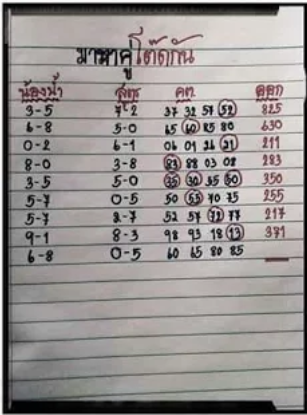 มาหาคู่โต๊ดกัน
น้องฟ้า สูตร คต ออก
3-5 7-2 37 32 57 52 825
6-8 5-0 65 60 85 80 630
0-2 6-1 06 01 26 21 211
8-0 3-8 83 88 03 08 283
3-5 5-0 35 30 55 50 350
5-7 0-5 50 55 70 75 255
5-7 2-7 52 57 72 77 217
9-1 8-3 98 93 18 13 371
6-8 0-5 60 65 80 85